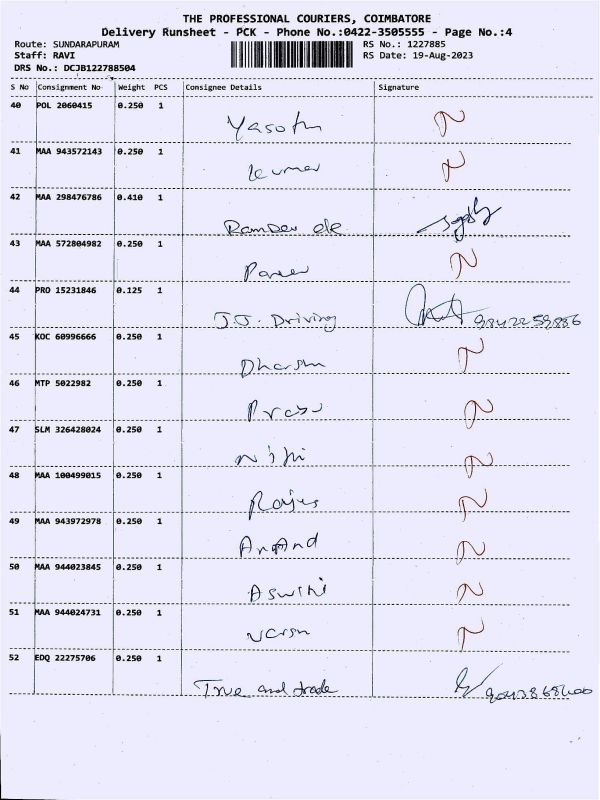 THE PROFESSIONAL COURIERS, COIMBATORE
Delivery Runsheet - PCK - Phone No.:0422-3505555 - Page No.:4
Route: SUNDARAPURAM RS No.: 1227885
Staff: RAVI RS Date: 19-Aug-2023
DRS No.: DCJB122788504
S No Consignment No Weight PCS Consignee Details Signature
40 POL 2060415 0.250 1
41 MAA 943572143 0.250 1
Kumar
42 MAA 298476786 0.410 1
43 MAA 572804982 0.250 1
44 PRO 15231846 0.125 1
J.J. Driving 9842259886
45 KOC 60996666 0.250 1
46 MTP 5022982 0.250 1
47 SLM 326428024 0.250 1
Nithi
48 MAA 100499015 0.250 1
49 MAA 943972978 0.250 1
Anand
50 MAA 944023845 0.250 1
Aswini
51 MAA 944024731 0.250 1
52 EDQ 22275706 0.250 1
True and trade